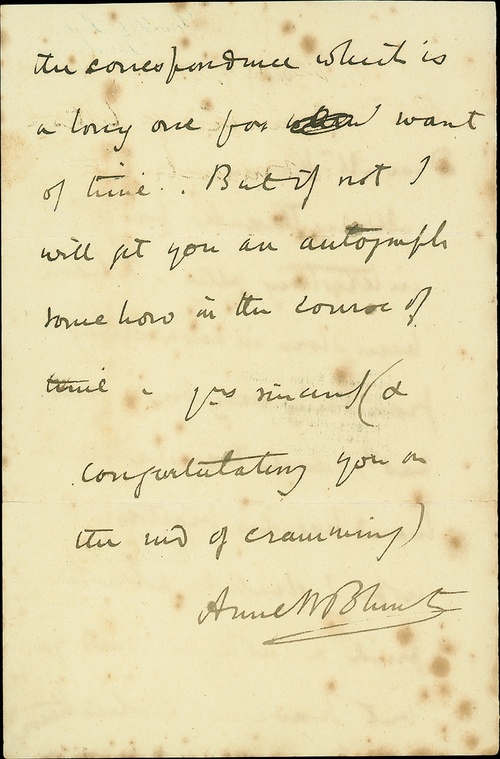 the correspondence which is
a long one for want
of time . But if not I
will get you an autograph
somehow in the course of
time - yrs sincerely (&
congratulating you on
the end of cramming)
Anne N Blunt